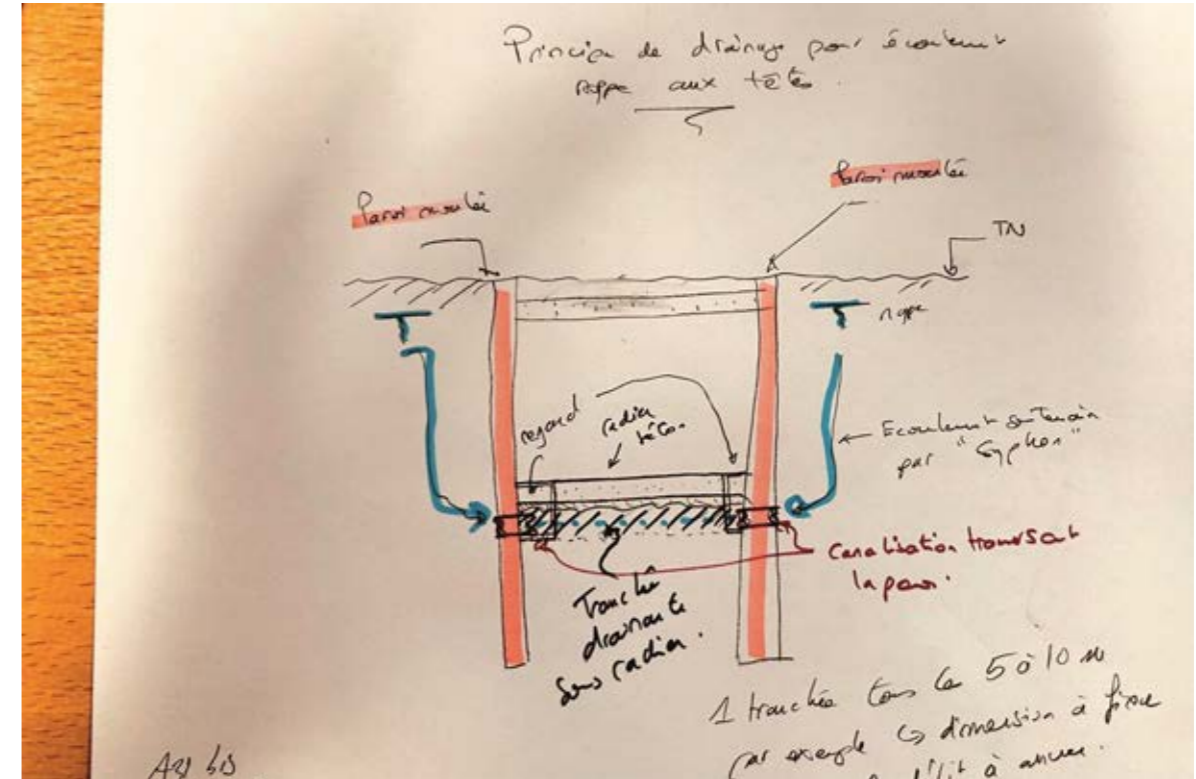 Principe de drainage pour écoulement
nappe aux têtes.
Paroi moulée
Paroi moulée
TN
nappe
regard
radier
béton
Ecoulement souterrain
par "Syphon"
Canalisation traversant
la paroi.
Tranchée
drainante
sous radier.
1 tranchée tous les 5 à 10 m
par exemple dimension à fixer
débit à